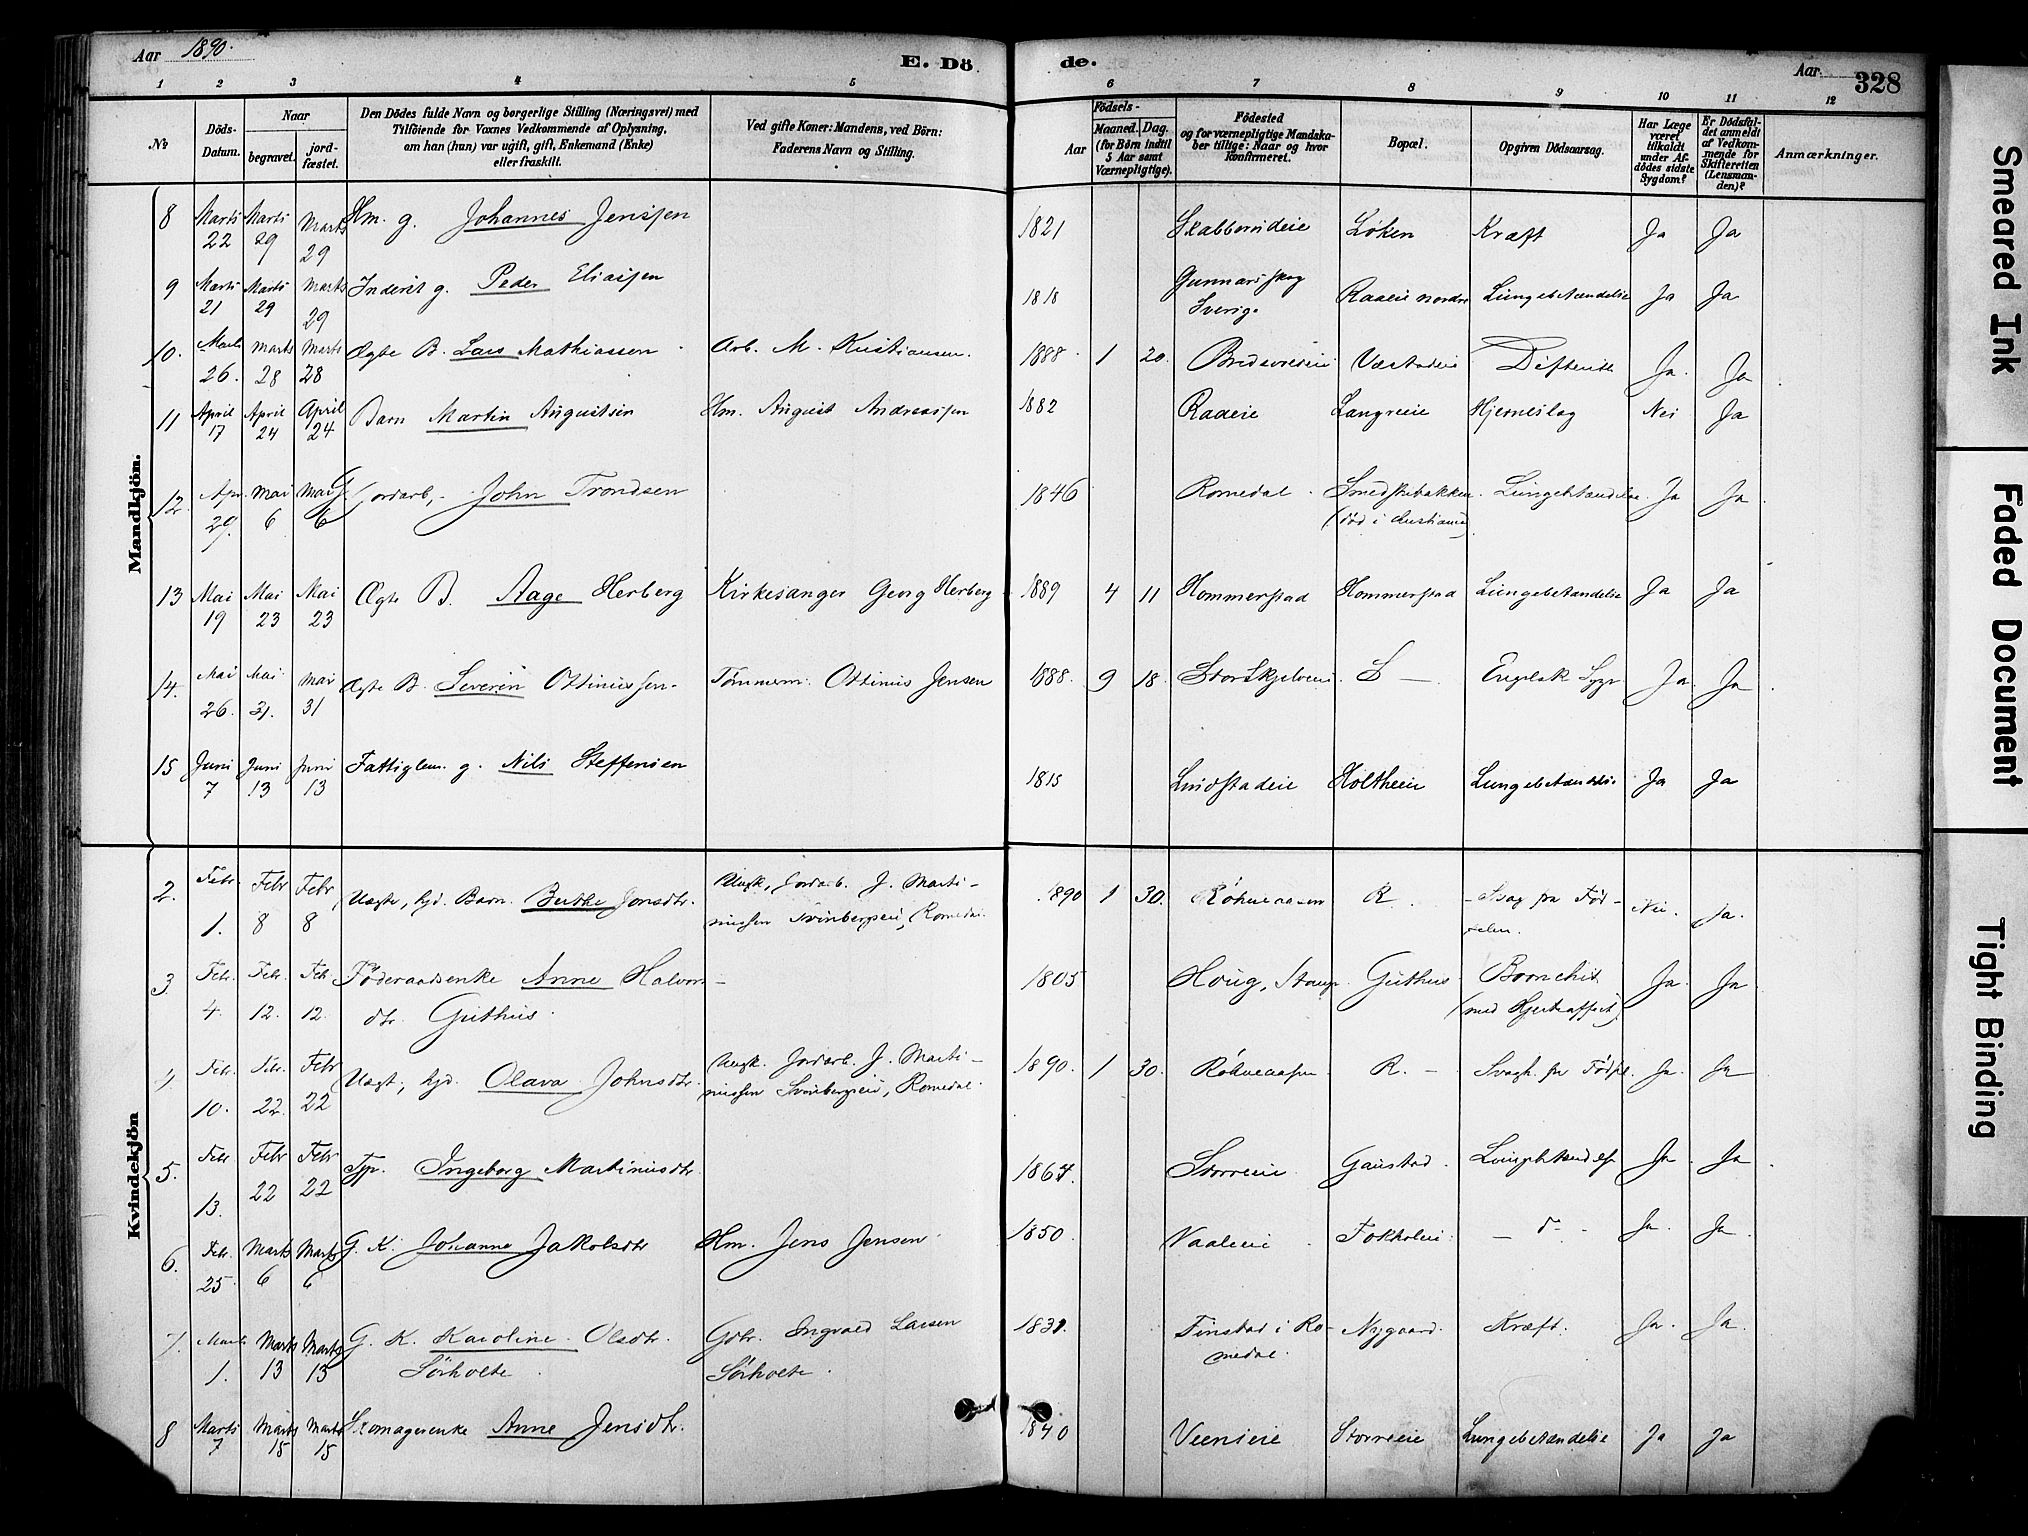 Aar 1890.
E. Dö
de.
Aar
328
1 2 3 4 5 6 7 8 9 10 11 12
No
Döds-Datum.
Naar
begravet.
jord-fæstet.
Den Dödes fulde Navn og borgerlige Stilling (Næringsvei) med
Tilföiende for Voxnes Vedkommende af Oplysning,
om han (hun) var ugift, gift, Enkemand (Enke)
eller fraskilt.
Ved gifte Koner: Mandens, ved Börn:
Faderens Navn og Stilling.
Födsels-
Aar
Maaned. Dag.
(for Börn indtil
5 Aar samt
Værnepligtige).
Födested
og for værnepligtige Mandska-
ber tillige: Naar og hvor
konfirmeret.
Bopæl.
Opgiven Dödsaarsag.
Har Læge
været
tilkaldt
under Af-
dödes sidste
Sygdom?
Er Dödsfal-
det anmeldt
af Vedkom-
mende for
Skifteretten
(Lensman-
den)?
Anmærkninger.
Mandkjön.
8 Marts 22 Marts 29 Marts 29 Hm. g. Johannes Jenssen 1821 Skabberudeie Løken Kræft Ja Ja
9 Marts 21 Marts 29 Marts 29 Inderst g. Peder Eliassen 1818 Gunnarsskog Sverige Raaeie nordre Lungebetændelse Ja Ja
10. Marts 26. Marts 28 Marts 28 Ægte B. Lars Mathiassen Arb. M. Kristiansen. 1888 1 20. Difterit Ja. Ja
11 April 17 April 24 April 24 Barn Martin Augustsen Hm. August Andreassen 1882 Raaeie Langreie Hjerneslag Nei Ja
12. Apr. 29. Mai 6 Mai 6 Jordarb., John Trondsen 1846 Romedal Smedstubakken (død i Christiania) Lungebetændelse. Ja Ja
13 Mai 19 Mai 23 Mai 23 Ægte B. Aage Herberg Kirkesanger Georg Herberg 1889 4 11 Hommerstad Hommerstad Lungebetændelse Ja Ja
14. Mai 26. Mai 31. Mai 31 Ægte B. Severin Ottiniussen. Tømmerm. Ottinius Jensen 1888. 9 18. Storskjelveie S— Engelsk Syge Ja. Ja
15 Juni 7 Juni 13 Juni 13 Fattiglem. g. Nils Steffensen 1815 Lindstadeie Holtheeie Lungebetændelse Ja Ja
Kvindekjön
2. Febr. 1. Febr 8 Febr 8 Uægte, hjd. Barn. Berthe Jonsdtr. Ungk, Jordarb. J. Martinussen Svinbergseie, Romedal. 1890 1 30. Røhneaasen R. Svag fra Fødselen. Nei. Ja.
3. Feb. 4. Feb. 12. Feb. 12. Føderaadsenke Anne Halvorsdtr. Guthus. 1805 Houg, Stange. Guthus Bronchit (med Hjerteaffect) Ja Ja
4. Feb. 10. Feb. 22. Febr 22 Uægt, hjd. Olava Johnsdtr. Ungk. Jordarb. J. Martinussen Svinbergseie, Romedal. 1890. 1 30. Røhneaasen R. Svagh. fra Fødsel Ja. Ja
5. Feb. 13. Febr 22 Febr 22 Tjp. Ingeborg Martinusdtr. 1864. Storreeie Gaustad. Lungebetændelse Ja Ja
6. Feb. 25. Marts 6 Marts 6 G. K. Johanne Jakobsdtr Hm. Jens Jensen 1850. Vaaleeie Fokholeie. — d — Ja. Ja.
7. Marts 1. Marts 13 Marts 13 G. K. Karoline Olsdtr. Sørholte Gdbr. Ingvald Larsen Sørholte. 1831. Finstad i Romedal. Nygaard. Kræft. Ja. Ja.
8 Marts 7 Marts 15 Marts 15 Skomagerenke Anne Jensdtr. 1840 Veenseie Storreeie Lungebetændelse Ja Ja
Smeared Ink
Faded Document
Tight Binding